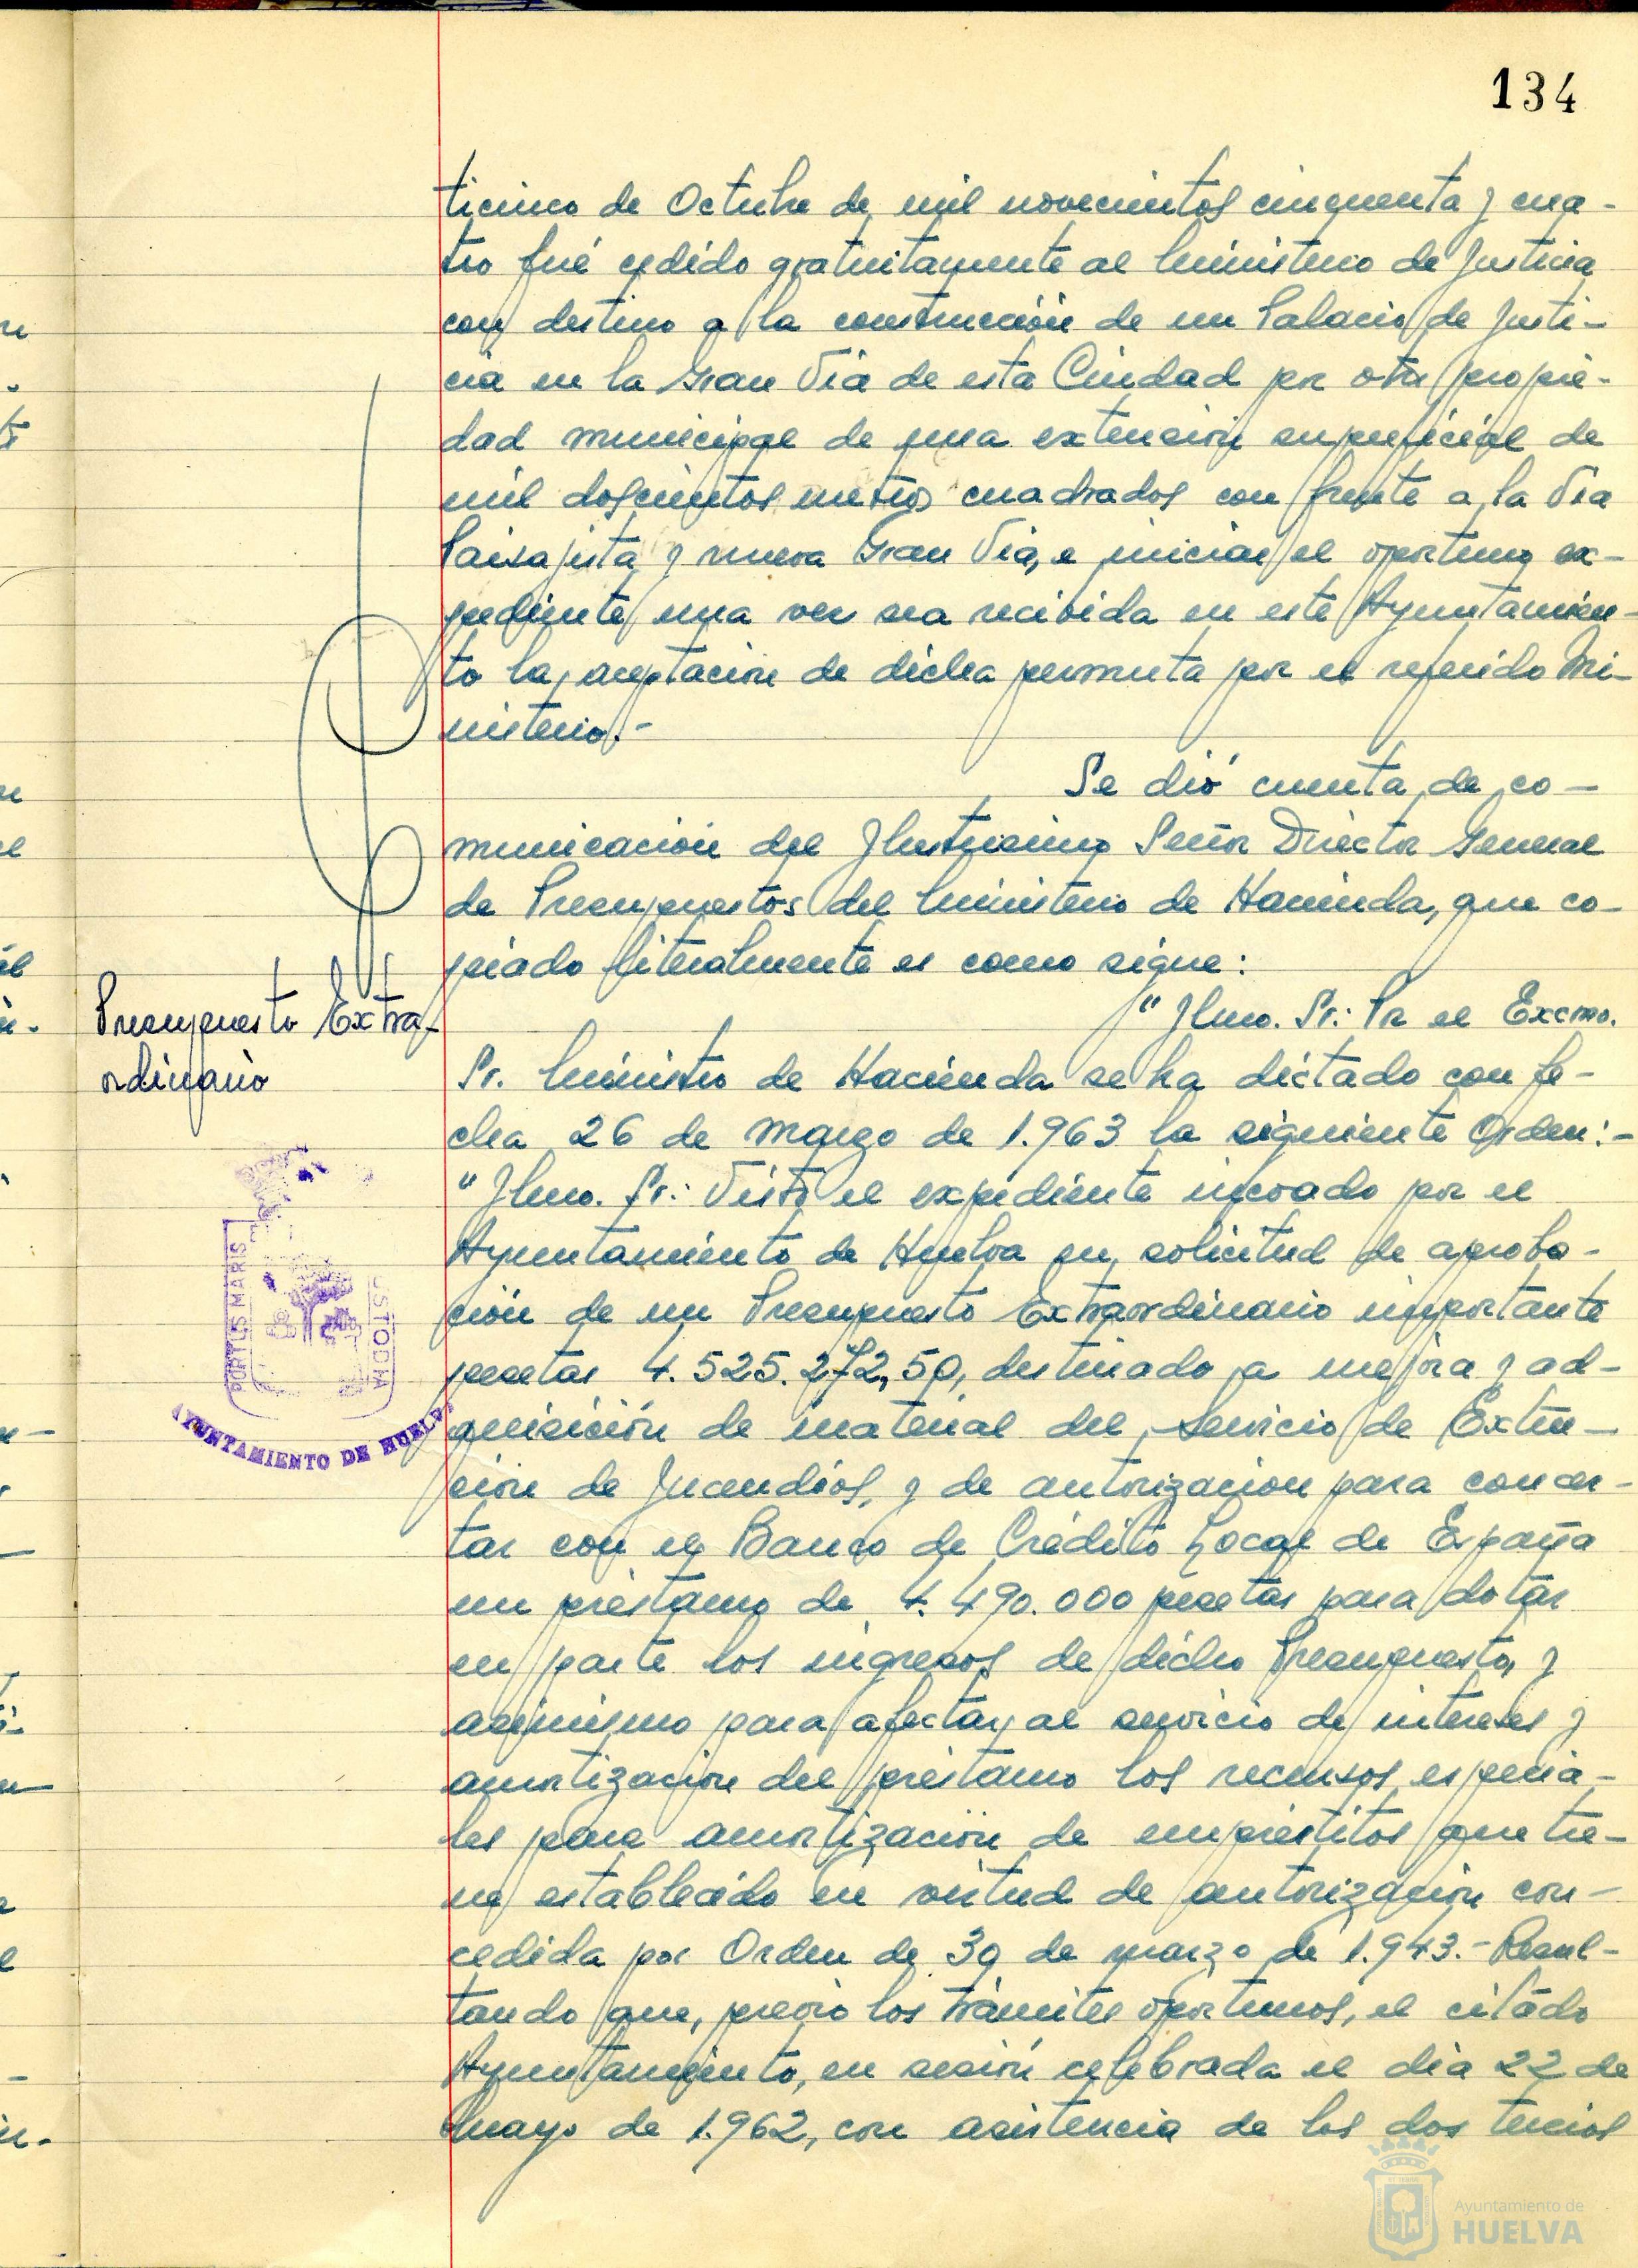 134
ticinco de Octubre de mil novecientos cincuenta y cua-
tro fué cedido gratuitamente al Ministerio de Justicia
con destino a la construcción de un Palacio de Justi-
cia en la Gran Vía de esta Ciudad por otra propie-
dad municipal de una extensión superficial de
mil doscientos metros cuadrados con frente a la Vía
Paisajista y nueva Gran Vía, e iniciar el oportuno ex-
pediente una vez sea recibida en este Ayuntamien-
to la aceptación de dicha permuta por el referido Mi-
nisterio.-
Se dió cuenta de co-
municación del Ilustrísimo Señor Director General
de Presupuestos del Ministerio de Hacienda, que co-
piado literalmente es como sigue:
Presupuesto Extra-
ordinario
"Ilmo. Sr.: Por el Excmo.
Sr. Ministro de Hacienda se ha dictado con fe-
cha 26 de marzo de 1.963 la siguiente Orden:-
"Ilmo. Sr.: Visto el expediente incoado por el
Ayuntamiento de Huelva en solicitud de aproba-
ción de un Presupuesto Extraordinario importante
pesetas 4.525.272,50, destinado a mejora y ad-
quisición de material del Servicio de Extin-
ción de Incendios, y de autorización para concer-
tar con el Banco de Crédito Local de España
un préstamo de 4.490.000 pesetas para dotar
en parte los ingresos de dicho Presupuesto, y
asimismo para afectar al servicio de intereses y
amortización del préstamo los recursos especia-
les para amortización de empréstitos que tie-
ne establecido en virtud de autorización con-
cedida por Orden de 30 de marzo de 1.943.- Resul-
tando que, previo los trámites oportunos, el citado
Ayuntamiento, en sesión celebrada el día 22 de
Mayo de 1.962, con asistencia de los dos tercios
PORTUS MARIS
CUSTODIA
AYUNTAMIENTO DE HUELVA
Ayuntamiento de
HUELVA